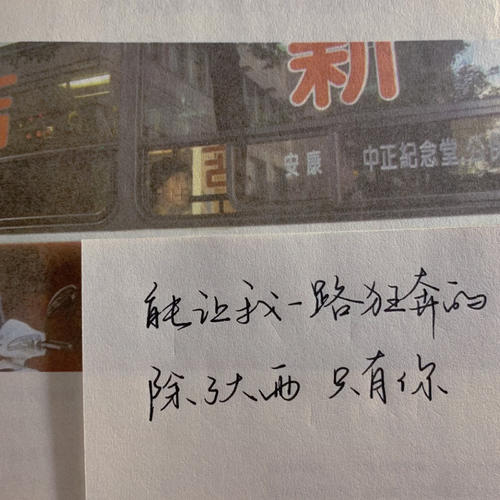 新
安康 中正紀念堂
能让我一路狂奔的
除了大西 只有你